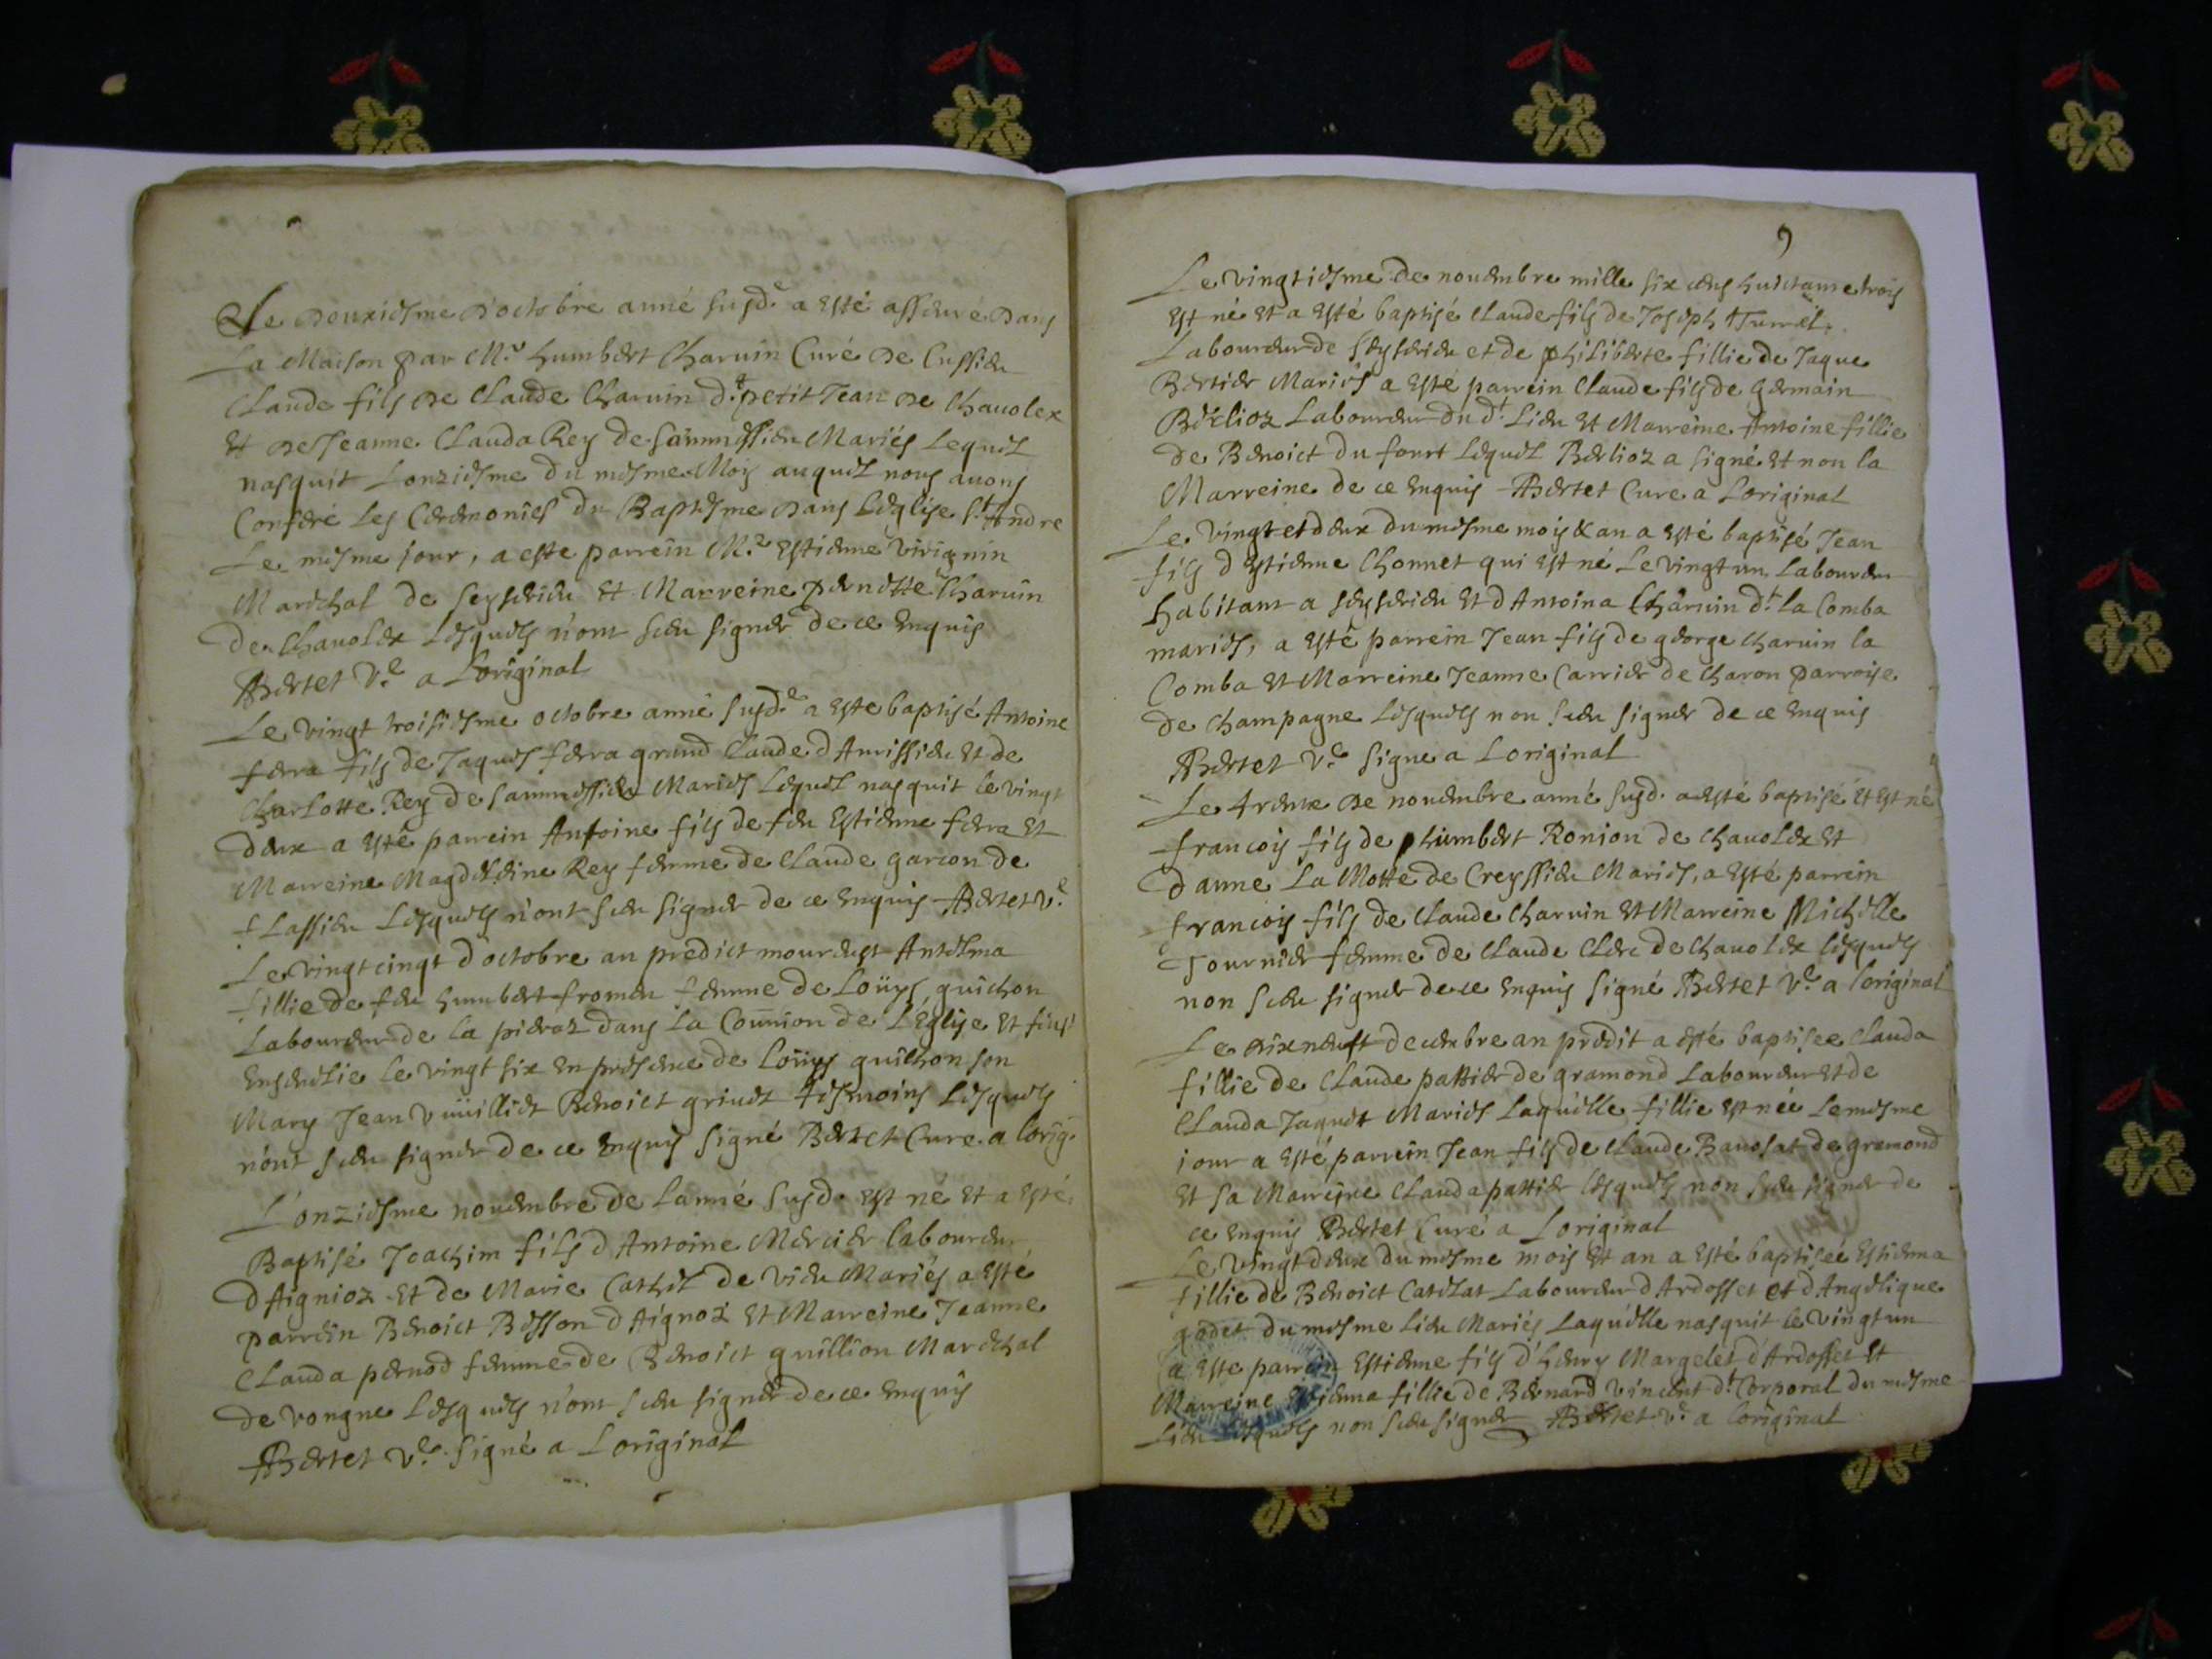 Le Douxiesme D'octobre anné susd.e a esté asseuré Dans
La Maison par M.e humbert Charuin Curé De Cussieu
Claude fils De Claude Charuin d.t petit Jean De Chauolex
Et De Jeanne Clauda Rey de Mariés Lequel
nasquit Lonziesme du mesme Mois auquel nous auons
Conferé les Ceremonies du Baptesme Dans Leglise S.t Andre
Le mesme jour, a esté parrein M.e Estienne virignin
Mareschal de Seyserieu Et Marreine pernette Charuin
de Chauolex Lesquels n'ont sceu signer de ce Enquis
Bertet V.e a Loriginal
Le vingt troisiesme octobre anné susd.e a esté baptisé Antoine
ferra fils de Jaques ferra grand Claude d'Auissieu Et de
Charlotte Rey de Mariés Lequel nasquit le vingt
deux a esté parrein Antoine fils de feu Estienne ferra Et
Marreine Magdeleine Rey femme de Claude garcon de
flassieu Lesquels n'ont sceu signer de ce enquis Bertet V.e
Le vingt cinqt d'octobre an predict mourust Antelma
fillie de feu humbert fromen femme de Loüys guichon
Laboureur de la pieraz dans la Counion de L'Eglise Et fust
Enseuelie le vingt six en presence de Loüys guichon son
Mary Jean vuilliet Benoict griuet tesmoins Lesquels
n'ont sceu signer de ce Enquis signé Bertet Cure a lorig.
L'onziesme nouembre de Lanné Susd. est né et a esté
Baptisé Joachim fils d'Antoine Mercier laboureur
d'Aignioz Et de Marie Cathel de vieu Mariés a esté
parrein Benoict Besson d'Aignoz Et Marreine Jeanne
Clauda pernod femme de Benoict guillion Mareschal
de vongne Lesquels n'ont sceu signer de ce Enquis
Bertet V.e signé a Loriginal
9
Le vingtiesme de nouembre mille six cens huictante trois
Est né Et a esté baptisé Claude fils de Joseph Turrel
Laboureur de Seyserieu et de philiberte fillie de Jaque
Bertier Mariés a Esté parrein Claude fils de Germain
Berlioz Laboureur du d.t Lieu Et Marreine Antoine fillie
de Benoict du fourt Lequel Berlioz a signé Et non la
Marreine de ce Enquis Bertet Cure a Loriginal
Le vingt et deux du mesme mois & an a esté baptisé Jean
fils d'Estienne Chonnet qui Est né Le vingt un Laboureur
habitant a Seyserieu Et d'Antoina Charuin d.t la Comba
mariés, a esté parrein Jean fils de george charuin la
Comba Et Marreine Jeanne Carrier de Charon parroise
de Champagne Lesquels non sceu signer de ce Enquis
Bertet V.e signe a Loriginal
Le 4 De nouembre anné susd. a esté baptisé Et est né
francois fils de humbert Ronion de Chauolex Et
d'anne La Motte de Creyssieu Mariés, a esté parrein
francois fils de Claude Charuin Et Marreine Michelle
Tournier femme de Claude Clerc de Chauolex lesquels
non sceu signer de ce enquis signé Bertet V.e a loriginal
Le Dixneuft decembre an prédit a esté baptisee Clauda
fillie de Claude pattier de gramond Laboureur et de
Clauda Jaquet Mariés Laquelle fillie est née Le mesme
jour a esté parrein Jean fils de Claude Bauosat de gremond
Et sa Marreine Clauda pattier lesquels non sceu signer de
ce enquis Bertet Curé a Loriginal
Le vingt deux du mesme mois Et an a esté baptisée Estienna
fillie de Benoict Catelat Laboureur d'Ardosset et d'Angelique
gadet du mesme lieu Mariés Laquelle nasquit le vingt un
a este parrein Estienne fils d'henry Margelet d'Ardosset Et
Marreine Estienna fillie de Bernard vincent d.t Corporal du mesme
Lieu Lesquels non sceu signer Bertet V.e a loriginal